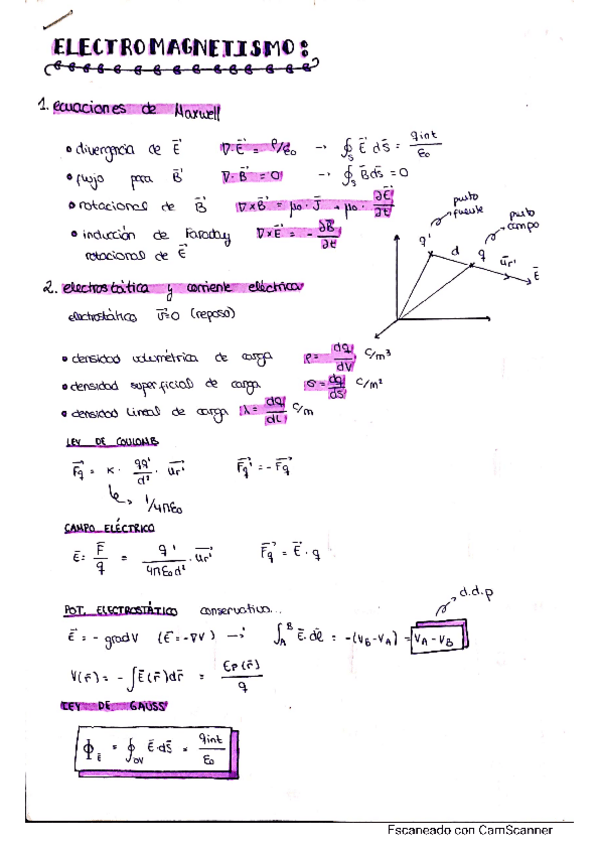 ELECTROMAGNETISMO:
1. ecuaciones de Maxwell
• divergencia de E⃗ ∇·E⃗ = ρ/ε₀ → ∮ₛ E⃗ ds⃗ = qint/ε₀
• flujo para B⃗ ∇·B⃗ = 0 → ∮ₛ B⃗ds⃗ = 0
• rotacional de B⃗ ∇×B⃗ = μ₀·J⃗ + μ₀· ∂E⃗/∂t
• inducción de Faraday ∇×E⃗ = - ∂B⃗/∂t
rotacional de E⃗
punto fuente
punto campo
q' d q u⃗r' E⃗
2. electrostática y corriente eléctrica
electrostática v⃗=0 (reposo)
• densidad volumétrica de carga ρ = dq/dV C/m³
• densidad superficial de carga σ = dq/dS C/m²
• densidad lineal de carga λ = dq/dL C/m
LEY DE COULOMB
F⃗q = K · qq'/d² · u⃗r' F⃗q' = - F⃗q
↳ 1/4πε₀
CAMPO ELÉCTRICO
E⃗ = F⃗/q = q'/4πε₀d² · u⃗r' F⃗q = E⃗ · q
POT. ELECTROSTÁTICO conservativo...
d.d.p
E⃗ = - grad V (E⃗ = -∇V) → ∫ₐᴮ E⃗·dl⃗ = -(V_B - V_A) = V_A - V_B
V(r⃗) = - ∫E⃗(r⃗)dr⃗ = Ep(r⃗)/q
LEY DE GAUSS
Φ_E⃗ = ∮_∂V E⃗·ds⃗ = qint/ε₀
Escaneado con CamScanner